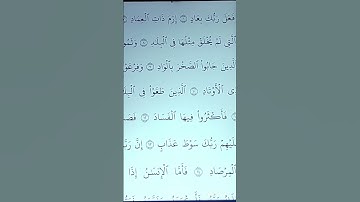 فَعَلَ رَبُّكَ بِعَادٍ ۝ إِرَمَ ذَاتِ الْعِمَادِ ۝
الَّتِي لَمْ يُخْلَقْ مِثْلُهَا فِي الْبِلَـٰدِ ۝ وَثَمُو
الَّذِينَ جَابُوا الصَّخْرَ بِالْوَادِ ۝ وَفِرْعَوْ
ذِي الْأَوْتَادِ ۝ الَّذِينَ طَغَوْا فِي الْبِلَـ
۝ فَأَكْثَرُوا فِيهَا الْفَسَادَ ۝ فَصَ
عَلَيْهِمْ رَبُّكَ سَوْطَ عَذَابٍ ۝ إِنَّ رَبَّ
الْمِرْصَادِ ۝ فَأَمَّا الْإِنْسَـٰنُ إِذَا